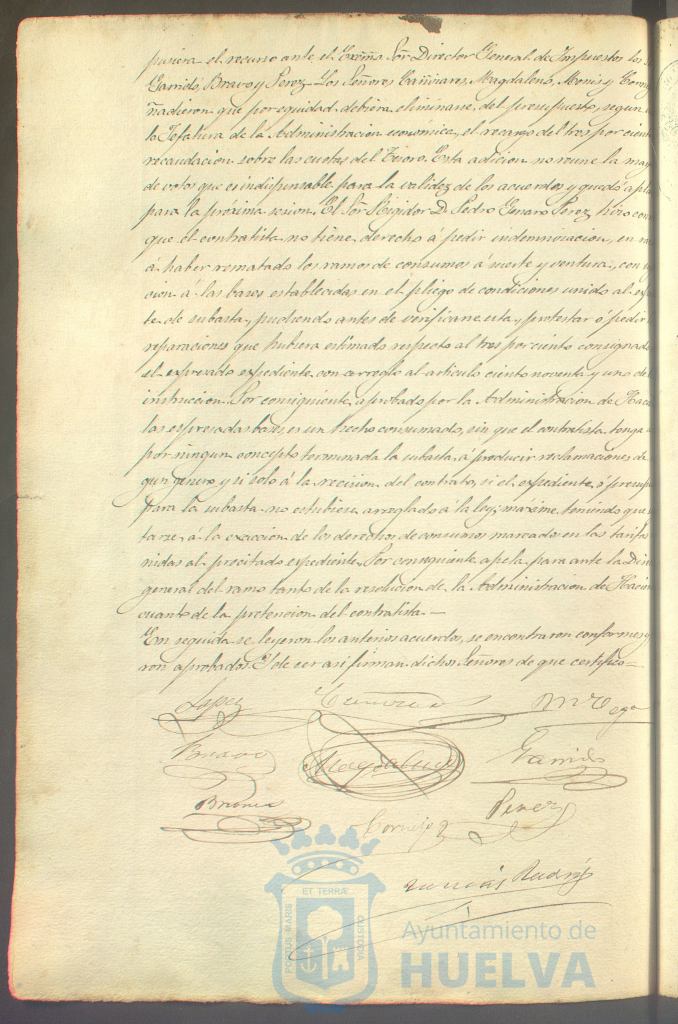 pusiera el recurso ante el Excmo Sor Director General de Impuestos los S
Garrido Bravo y Perez. Los Señores Cañizares, Magdaleno, Monis y Corn
ñadieron que por equidad debiera eliminarse del presupuesto, segun
la Jefatura de la Administracion economica, el recargo del tres por cient
recaudacion sobre las cuotas del Tesoro. Esta adicion no reune la may
de votos que es indispensable para la validez de los acuerdos y quedó apla
para la próxima sesion. El Sor Regidor D. Pedro Genaro Perez hizo con
que el contratista no tiene derecho á pedir indemnizacion, en ra
á haber rematado los ramos de consumos á suerte y ventura, con
cion á las bases establecidas en el pliego de condiciones unido al exp
te de subasta, pudiendo antes de verificarse esta, protestar ó pedir
reparaciones que hubiera estimado respecto al tres por ciento consignado
el expresado expediente con arreglo al articulo ciento noventa y uno de
instruccion. Por consiguiente, aprobado por la Administracion de Hac
las expresadas bases es un hecho consumado, sin que el contratista tenga
por ningun concepto terminada la subasta, á producir reclamaciones de
gun genero y si solo á la recision del contrato, si el expediente ó presup
para la subasta no estubiese arreglado á la ley, maxime teniendo que
tarse á la exaccion de los derechos de consumos marcados en las tarifas
nidas al precitado expediente. Por consiguiente apela para ante la Dire
general del ramo tanto de la resolucion de la Administracion de Hacien
cuanto de la pretencion del contratista.—
En seguida se leyeron los anteriores acuerdos, se encontraron conformes y
ron aprobados. Y de ser asi firman dichos Señores de que certifico=
Lopez
Bravo Magdaleno Garrido
Cornejo Perez
ET TERRÆ
PORTUS MARIS
CUSTODIA
Ayuntamiento de
HUELVA